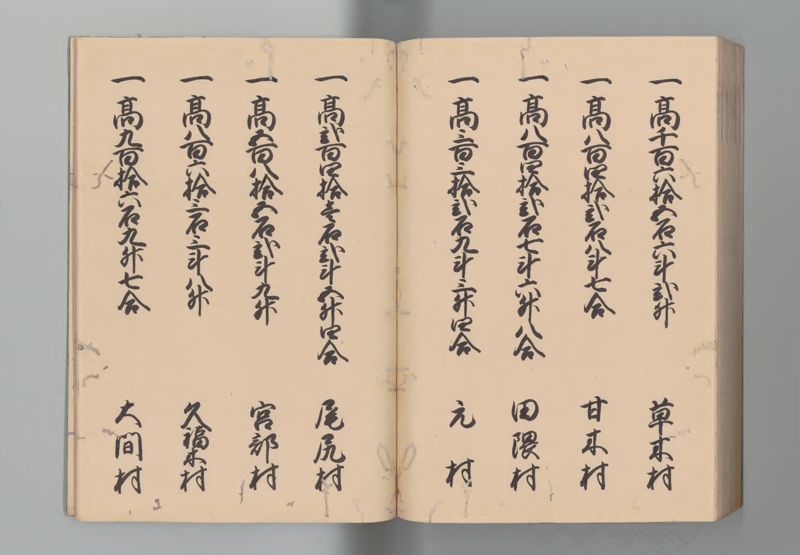 一高千百六拾五石六斗弐升 草木村
一高八百四拾弐石八斗七合 甘木村
一高八百四拾弐石七斗六升八合 田隈村
一高三百三拾弐石九斗三升四合 元村
一高弐百四拾壱石弐斗五升四合 尾尻村
一高五百八拾五石弐斗九升 宮部村
一高八百六拾三石三斗八升 久福木村
一高九百拾六石九升七合 大間村